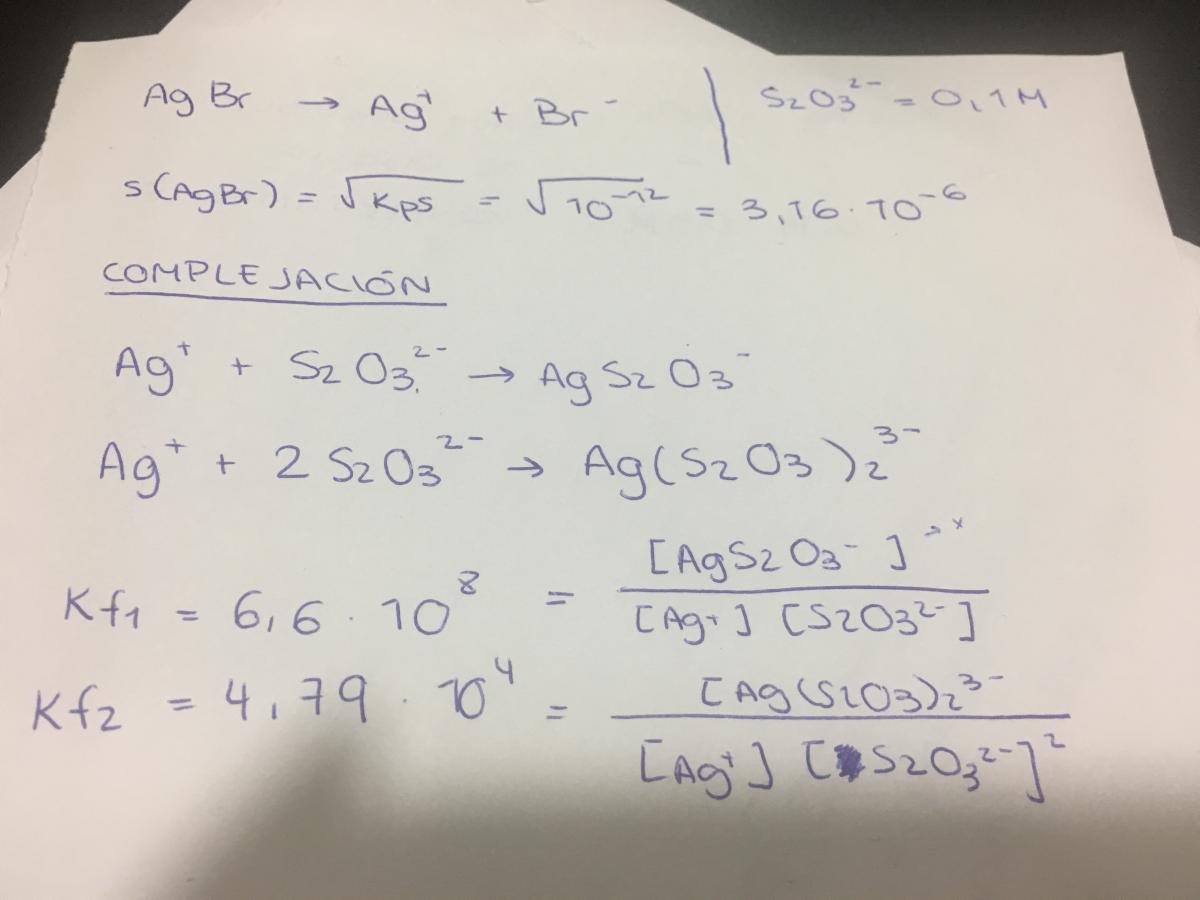 AgBr → Ag⁺ + Br⁻ | S2O3²⁻ = 0,1M
s(AgBr) = √Kps = √10⁻¹² = 3,16·10⁻⁶
COMPLEJACIÓN
Ag⁺ + S2O3²⁻ → AgS2O3⁻
Ag⁺ + 2 S2O3²⁻ → Ag(S2O3)2³⁻
Kf1 = 6,6 · 10⁸ = [AgS2O3⁻] → x / [Ag⁺] [S2O3²⁻]
Kf2 = 4,79 · 10⁴ = [Ag(S2O3)2³⁻ / [Ag⁺] [S2O3²⁻]²